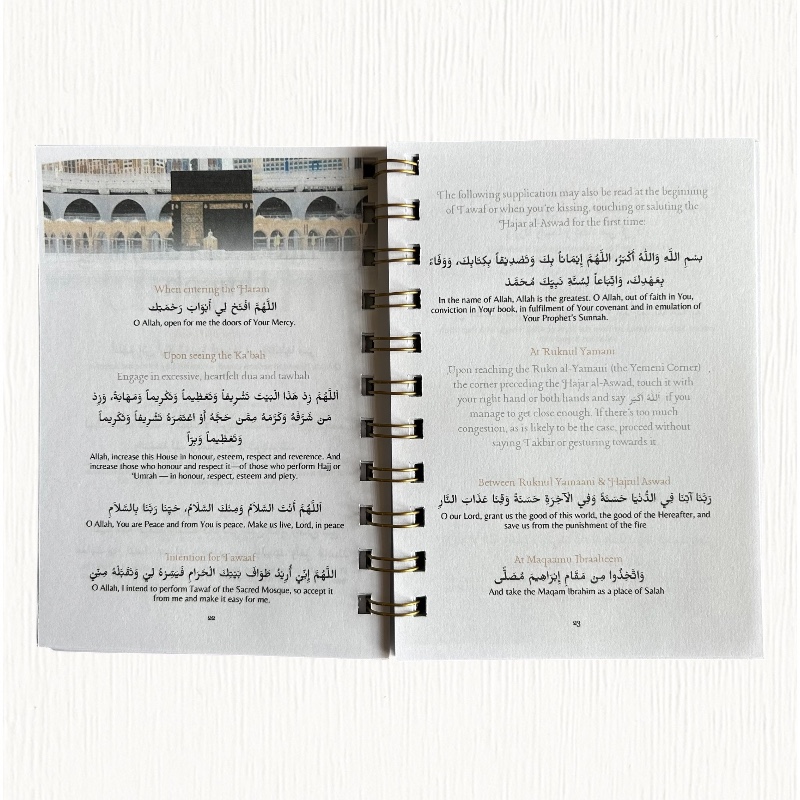 When entering the Haram
اللَّهُمَّ افْتَحْ لِي أَبْوَابَ رَحْمَتِكَ
O Allah, open for me the doors of Your Mercy.
Upon seeing the Ka'bah
Engage in excessive, heartfelt dua and tawbah
اَللَّهُمَّ زِدْ هَذَا الْبَيْتَ تَشْرِيفاً وَتَعْظِيماً وَتَكْرِيماً وَمَهَابَةً، وَزِدْ
مَن شَرَّفَهُ وَكَرَّمَهُ مِمَّن حَجَّهُ أَوْ اعْتَمَرَهُ تَشْرِيفاً وَتَكْرِيماً
وَتَعْظِيماً وَبِرّاً
Allah, increase this House in honour, esteem, respect and reverence. And
increase those who honour and respect it—of those who perform Hajj or
'Umrah — in honour, respect, esteem and piety.
اَللَّهُمَّ أَنْتَ السَّلَامُ وَمِنْكَ السَّلَامُ، حَيِّنَا رَبَّنَا بِالسَّلَامِ
O Allah, You are Peace and from You is peace. Make us live, Lord, in peace
Intention for Tawaaf
اَللَّهُمَّ إِنِّي أُرِيْدُ طَوَافَ بَيْتِكَ الْحَرَامِ فَيَسِّرْهُ لِي وَتَقَبَّلْهُ مِنِّي
O Allah, I intend to perform Tawaf of the Sacred Mosque, so accept it
from me and make it easy for me.
22
The following supplication may also be read at the beginning
of Tawaf or when you're kissing, touching or saluting the
Hajar al-Aswad for the first time:
بِسْمِ اللَّهِ وَاللَّهُ أَكْبَرُ، اللَّهُمَّ إِيْمَاناً بِكَ وَتَصْدِيْقاً بِكِتَابِكَ، وَوَفَاءً
بِعَهْدِكَ، وَاتِّبَاعاً لِسُنَّةِ نَبِيِّكَ مُحَمَّد
In the name of Allah, Allah is the greatest. O Allah, out of faith in You,
conviction in Your book, in fulfilment of Your covenant and in emulation of
Your Prophet's Sunnah.
At Ruknul Yamani
Upon reaching the Rukn al-Yamani (the Yemeni Corner) ,
the corner preceding the Hajar al-Aswad, touch it with
your right hand or both hands and say اللهُ اكبر if you
manage to get close enough. If there's too much
congestion, as is likely to be the case, proceed without
saying Takbir or gesturing towards it .
Between Ruknul Yamaani & Hajrul Aswad
رَبَّنَا آتِنَا فِي الدُّنْيَا حَسَنَةً وَفِي الْآخِرَةِ حَسَنَةً وَقِنَا عَذَابَ النَّارِ
O our Lord, grant us the good of this world, the good of the Hereafter, and
save us from the punishment of the fire
At Maqaamu Ibraaheem
وَاتَّخِذُوا مِن مَقَامِ إِبْرَاهِيمَ مُصَلًّى
And take the Maqam Ibrahim as a place of Salah
23